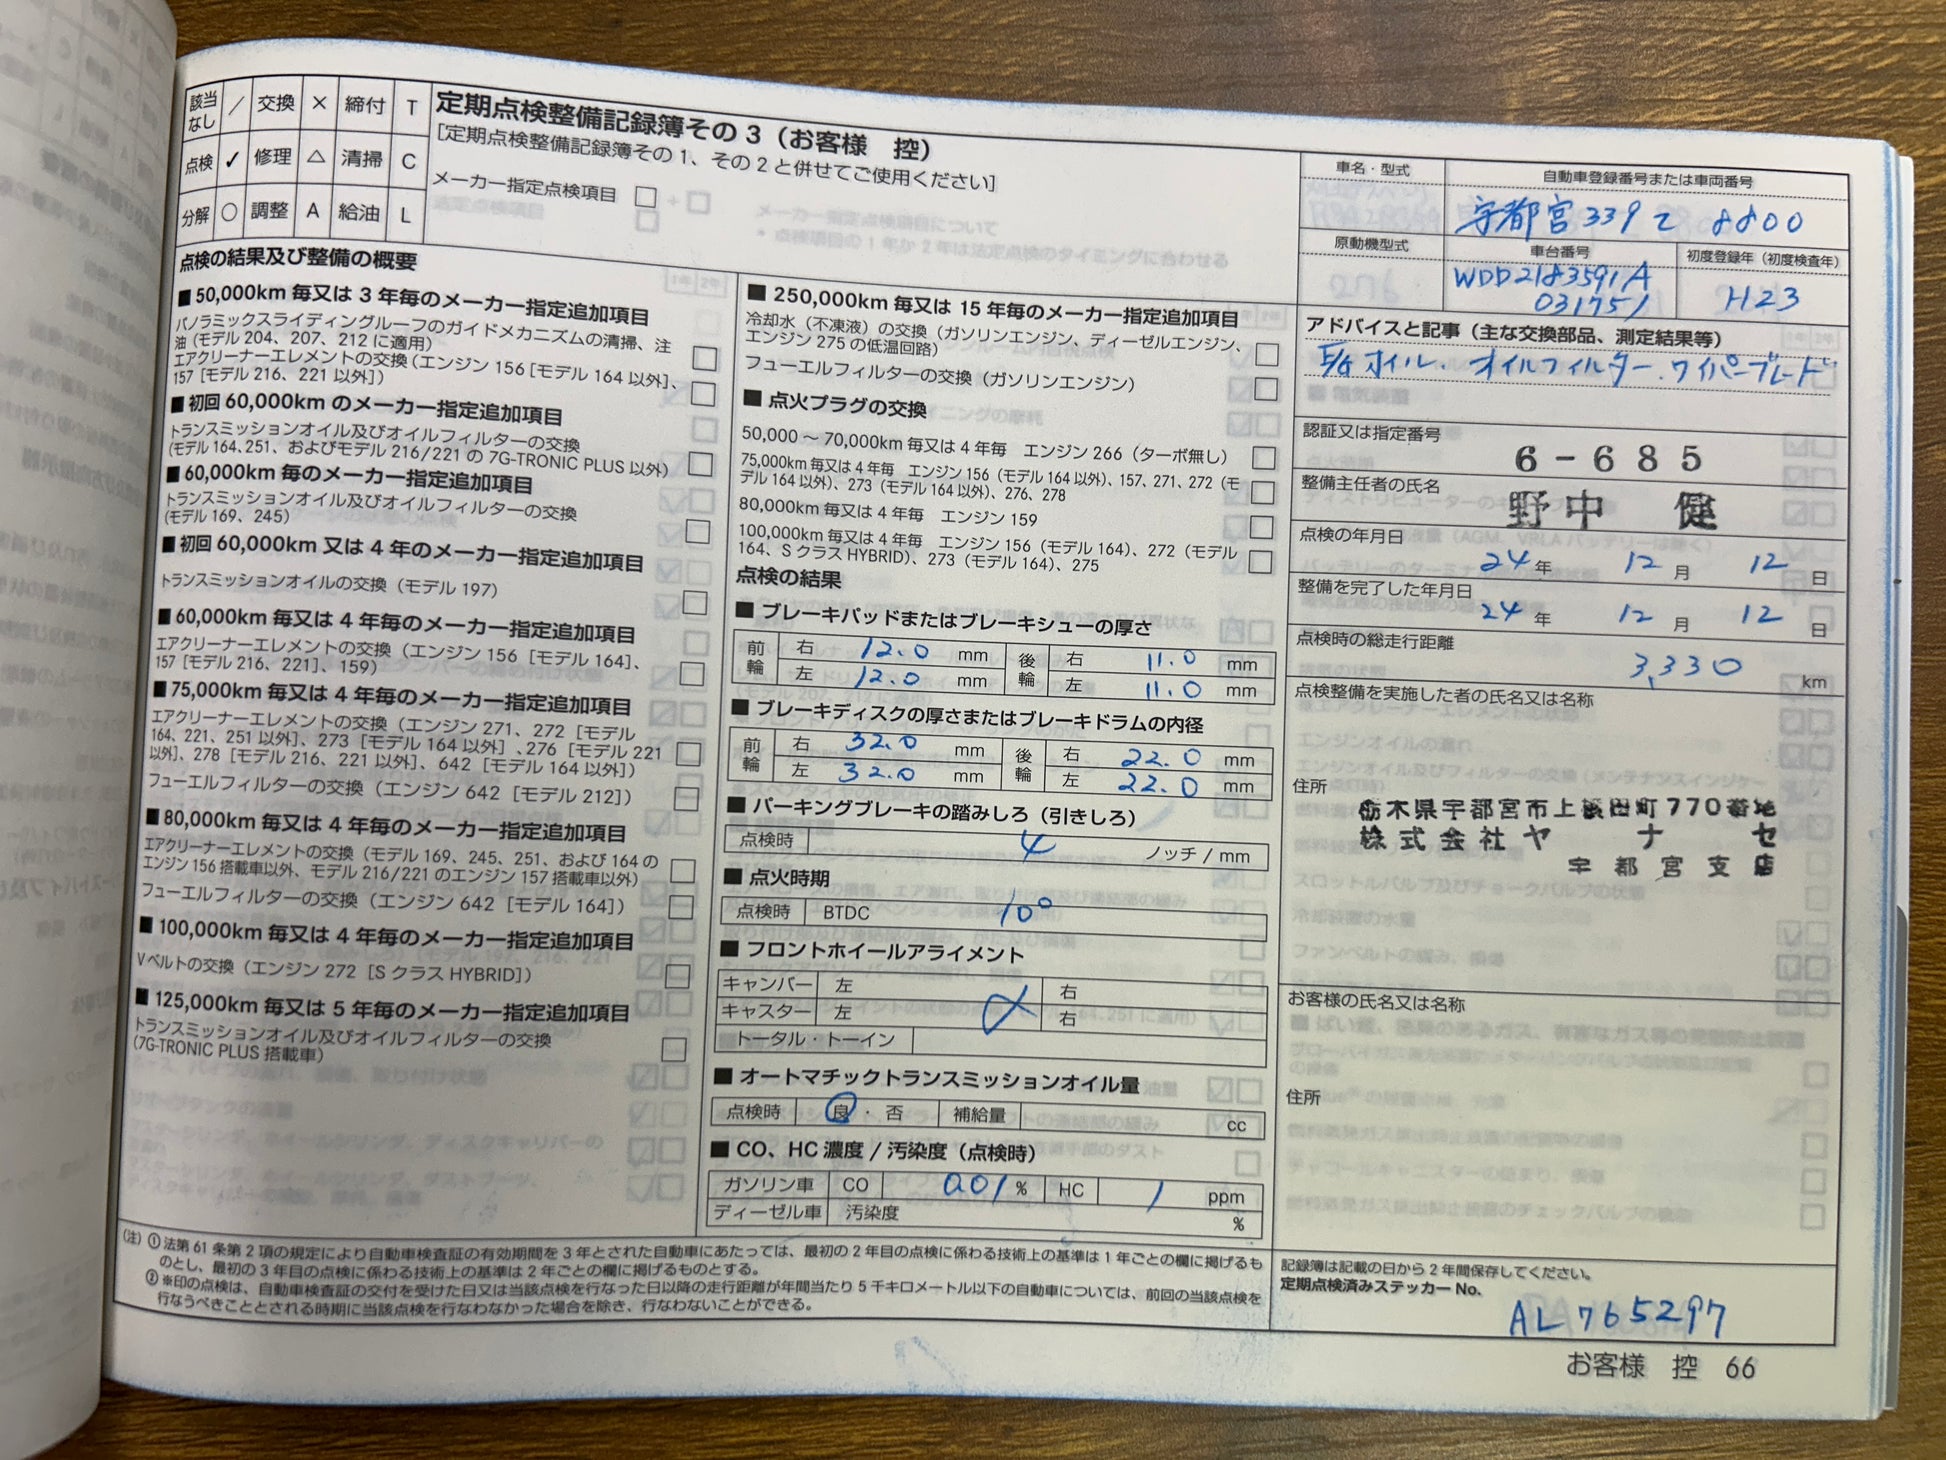 該当なし ／ 交換 × 締付 T
点検 ✓ 修理 △ 清掃 C
分解 ○ 調整 A 給油 L
定期点検整備記録簿その3（お客様　控）
[定期点検整備記録簿その1、その2と併せてご使用ください]
メーカー指定点検項目 □
点検の結果及び整備の概要
■ 50,000km 毎又は 3 年毎のメーカー指定追加項目
パノラミックスライディングルーフのガイドメカニズムの清掃、注
油（モデル 204、207、212 に適用） □
エアクリーナーエレメントの交換（エンジン 156［モデル 164 以外］、
157［モデル 216、221 以外］） □
■ 初回 60,000km のメーカー指定追加項目
トランスミッションオイル及びオイルフィルターの交換
（モデル 164、251、およびモデル 216/221 の 7G-TRONIC PLUS 以外） □
■ 60,000km 毎のメーカー指定追加項目
トランスミッションオイル及びオイルフィルターの交換
（モデル 169、245） □
■ 初回 60,000km 又は 4 年のメーカー指定追加項目
トランスミッションオイルの交換（モデル 197） □
■ 60,000km 毎又は 4 年毎のメーカー指定追加項目
エアクリーナーエレメントの交換（エンジン 156［モデル 164］、
157［モデル 216、221］、159） □
■ 75,000km 毎又は 4 年毎のメーカー指定追加項目
エアクリーナーエレメントの交換（エンジン 271、272［モデル
164、221、251 以外］、273［モデル 164 以外］、276［モデル 221
以外］、278［モデル 216、221 以外］、642［モデル 164 以外］） □
フューエルフィルターの交換（エンジン 642［モデル 212］） □
■ 80,000km 毎又は 4 年毎のメーカー指定追加項目
エアクリーナーエレメントの交換（モデル 169、245、251、および 164 の
エンジン 156 搭載車以外、モデル 216/221 のエンジン 157 搭載車以外） □
フューエルフィルターの交換（エンジン 642［モデル 164］） □
■ 100,000km 毎又は 4 年毎のメーカー指定追加項目
V ベルトの交換（エンジン 272［S クラス HYBRID］） □
■ 125,000km 毎又は 5 年毎のメーカー指定追加項目
トランスミッションオイル及びオイルフィルターの交換
（7G-TRONIC PLUS 搭載車） □
■ 250,000km 毎又は 15 年毎のメーカー指定追加項目
冷却水（不凍液）の交換（ガソリンエンジン、ディーゼルエンジン、
エンジン 275 の低温回路） □
フューエルフィルターの交換（ガソリンエンジン） □
■ 点火プラグの交換
50,000 ～ 70,000km 毎又は 4 年毎　エンジン 266（ターボ無し） □
75,000km 毎又は 4 年毎　エンジン 156（モデル 164 以外）、157、271、272（モ
デル 164 以外）、273（モデル 164 以外）、276、278 □
80,000km 毎又は 4 年毎　エンジン 159 □
100,000km 毎又は 4 年毎　エンジン 156（モデル 164）、272（モデル
164、S クラス HYBRID）、273（モデル 164）、275 □
点検の結果
■ ブレーキパッドまたはブレーキシューの厚さ
前輪 右 12.0 mm 後輪 右 11.0 mm
左 12.0 mm 左 11.0 mm
■ ブレーキディスクの厚さまたはブレーキドラムの内径
前輪 右 32.0 mm 後輪 右 22.0 mm
左 32.0 mm 左 22.0 mm
■ パーキングブレーキの踏みしろ（引きしろ）
点検時 4 ノッチ / mm
■ 点火時期
点検時 BTDC 10°
■ フロントホイールアライメント
キャンバー 左 右
キャスター 左 右
トータル・トーイン
■ オートマチックトランスミッションオイル量
点検時 良・否 補給量 cc
■ CO、HC 濃度 / 汚染度（点検時）
ガソリン車 CO 0.01 % HC 1 ppm
ディーゼル車 汚染度 %
車名・型式 自動車登録番号または車両番号
宇都宮 339 て 8800
原動機型式 車台番号 初度登録年（初度検査年）
WDD2183591A
031751 H23
アドバイスと記事（主な交換部品、測定結果等）
E/gオイル. オイルフィルター. ワイパーブレード
認証又は指定番号
6-685
整備主任者の氏名
野中　健
点検の年月日
24 年 12 月 12 日
整備を完了した年月日
24 年 12 月 12 日
点検時の総走行距離
3,330 km
点検整備を実施した者の氏名又は名称
住所
栃木県宇都宮市上横田町770番地
株式会社ヤナセ
宇都宮支店
お客様の氏名又は名称
住所
（注）① 法第 61 条第 2 項の規定により自動車検査証の有効期間を 3 年とされた自動車にあたっては、最初の 2 年目の点検に係わる技術上の基準は 1 年ごとの欄に掲げるも
のとし、最初の 3 年目の点検に係わる技術上の基準は 2 年ごとの欄に掲げるものとする。
② ※印の点検は、自動車検査証の交付を受けた日又は当該点検を行なった日以降の走行距離が年間当たり 5 千キロメートル以下の自動車については、前回の当該点検を
行なうべきこととされる時期に当該点検を行なわなかった場合を除き、行なわないことができる。
記録簿は記載の日から 2 年間保存してください。
定期点検済みステッカー No.
AL765297
お客様　控　66